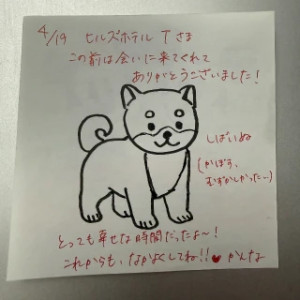 4/19 ヒルズホテル Tさま
この前は会いに来てくれて
ありがとうございました!
しばいぬ
(かぼす、
むずかしかった~)
とっても幸せな時間だったよ~!
これからも、なかよくしてね!!♥ かんな